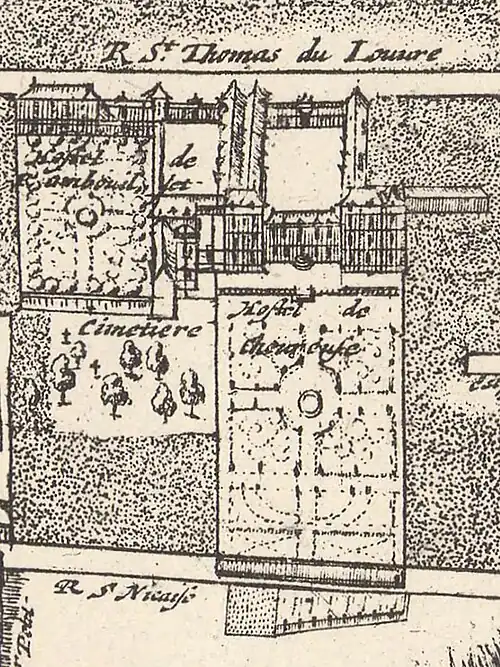 R St Thomas du Louure
Hostel de
Rambouillet
Hostel de
Cheureuse
Cimetiere
R S Nicaise